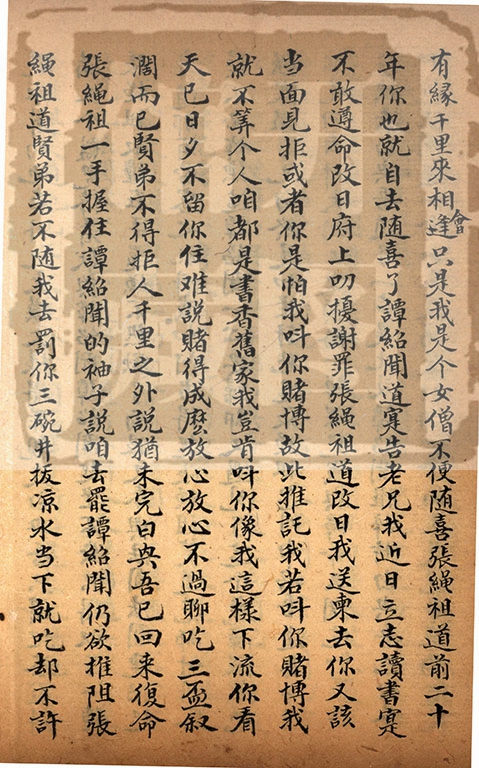 有縁千里來相逢會只是我是个女僧不便随喜張繩祖道前二十
年你也就自去随喜了譚紹聞道寔告老兄我近日立志讀書寔
不敢遵命改日府上叨擾謝罪張繩祖道改日我送柬去你又該
当面見拒或者你是怕我呌你賭博故此推託我若呌你賭博我
就不筭个人咱都是書香舊家我豈肯呌你像我這樣下流你看
天已日夕不留你住难説賭得成麽放心放心不過聊吃三盃叙
濶而已賢弟不得拒人千里之外説猶未完白與吾已回来復命
張繩祖一手握住譚紹聞的袖子説咱去罷譚紹聞仍欲推阻張
繩祖道賢弟若不随我去罰你三碗井拔凉水当下就吃却不許